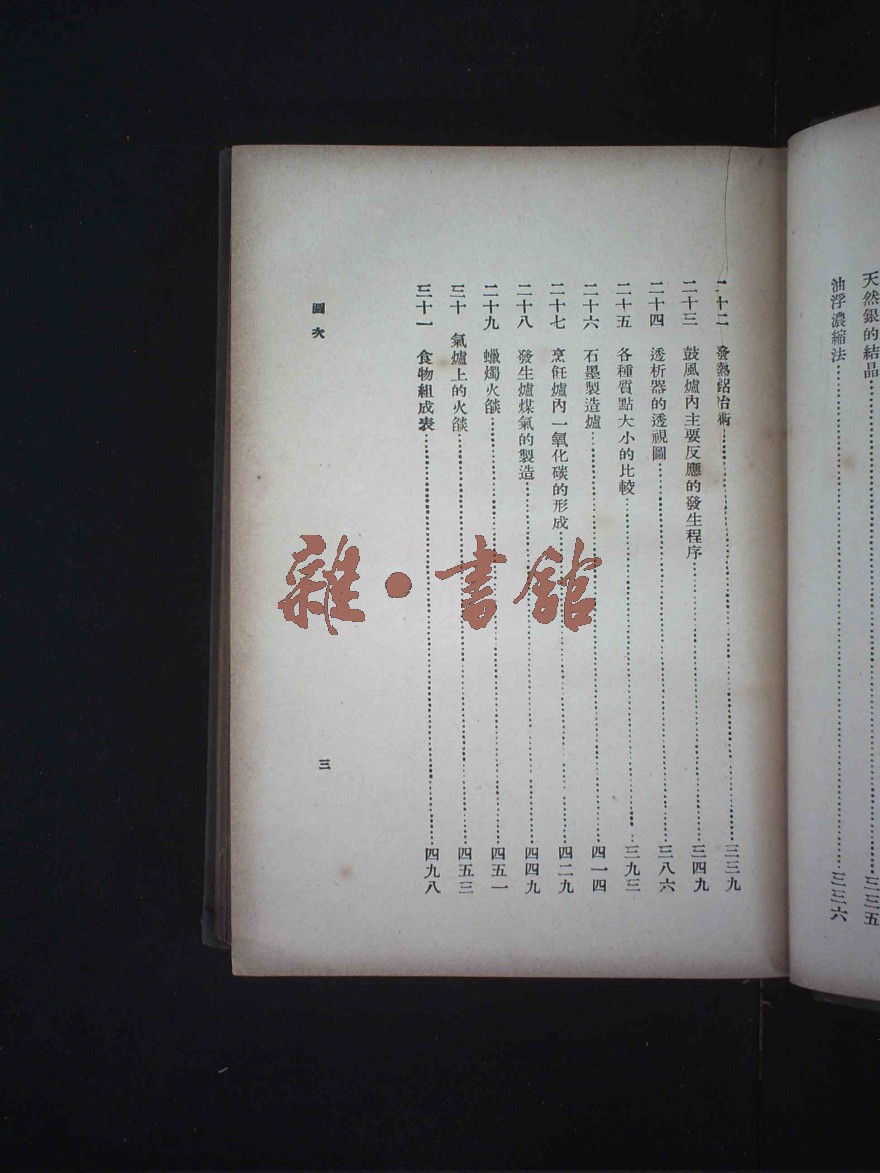 天然銀的結晶……三三五
油浮濃縮法……三三六
二十二 發熱鋁冶術……三三九
二十三 鼓風爐內主要反應的發生程序……三四九
二十四 透析器的透視圖……三八六
二十五 各種質點大小的比較……三九三
二十六 石墨製造爐……四一四
二十七 烹飪爐內一氧化碳的形成……四二九
二十八 發生爐煤氣的製造……四四九
二十九 蠟燭火燄……四五一
三十 氣爐上的火燄……四五三
三十一 食物組成表……四九八
圖次 三
雜·書館